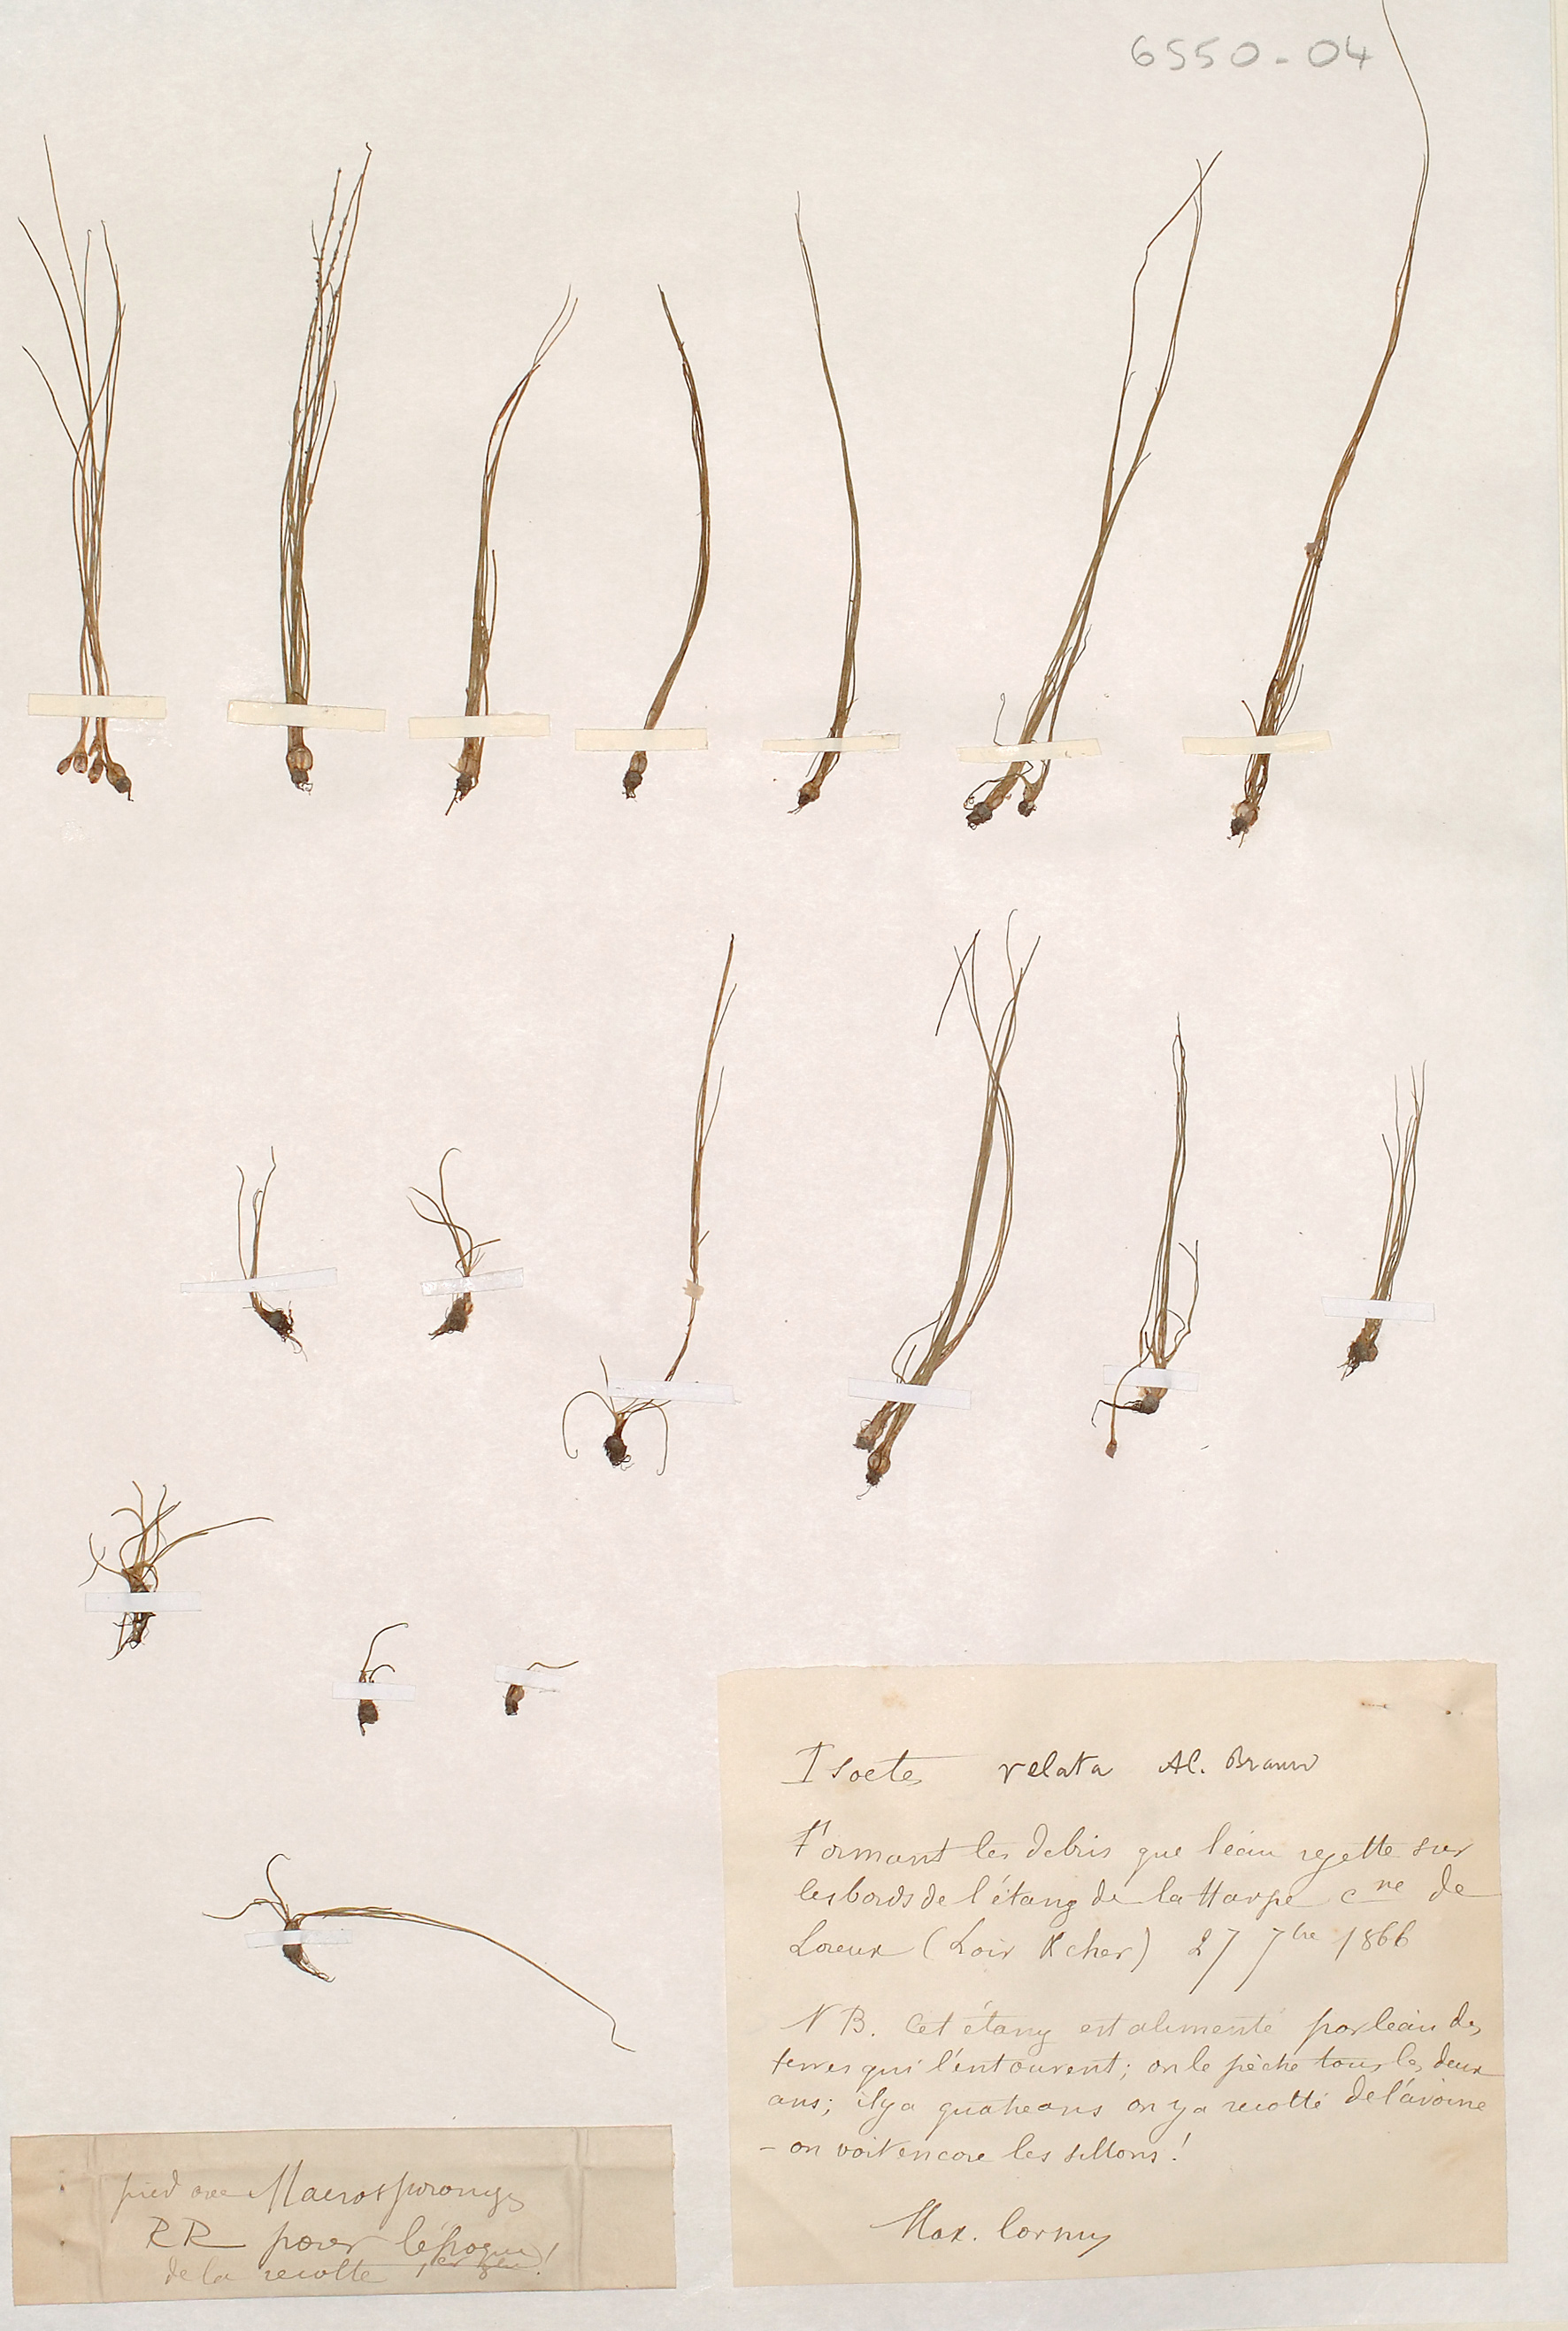 6550-04
Isoetes velata Al. Braun
Formant les debris que l'eau rejette sur
les bords de l'étang de la Harpe cne de
Loreux (Loir & cher) 27 7bre 1866
NB. Cet étang est alimenté par l'eau des
terres qui l'entourent; on le pèche tous les deux
ans; il y a quatre ans on y a recolté de l'avoine
- on voit encore les sillons!
Max. Cornu
pied avec Macrosporanges
RR pour l'époque
de la recolte